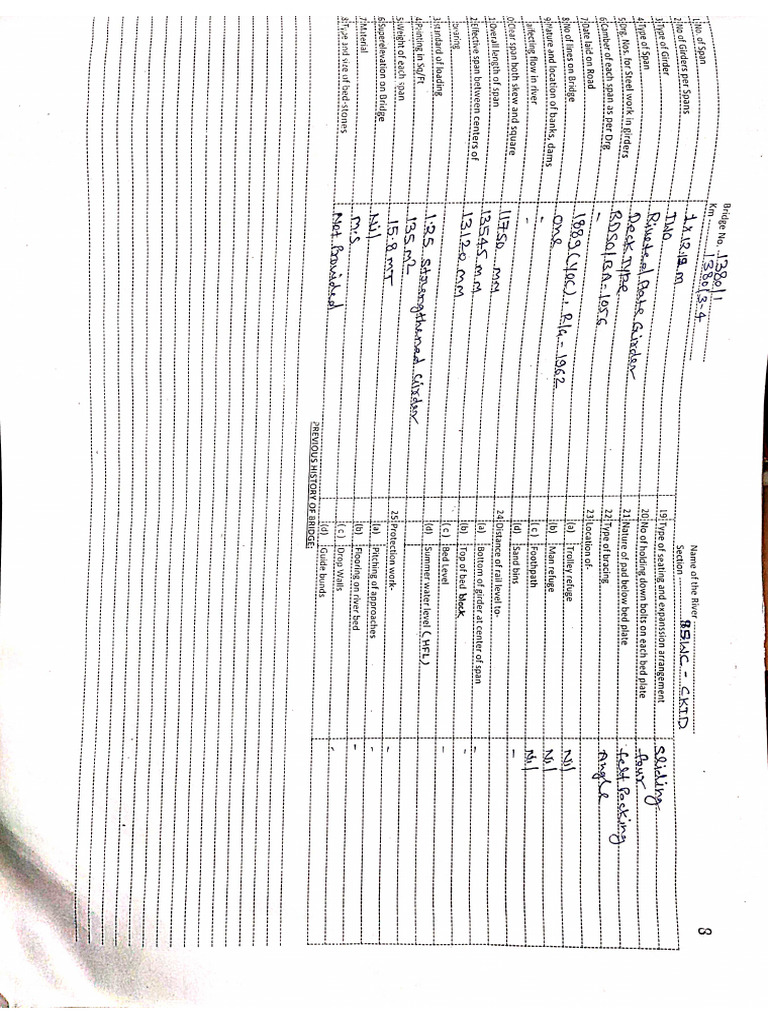 8
Bridge No. 1380/1
Km 1380/3-4
Name of the River
Section BSWC - CKTD
1 No. of Span 1 x 12.19 m
2 No of Girders per Spans Two
3 Type of Girder Riveted Plate Girder
4 Type of Span Deck Type
5 Drg. Nos. for Steel work in girders RDSO/BA-1056
6 Camber of each span as per Drg -
7 Date laid on Road 1889 (YOC), R/G - 1962
8 No of lines on Bridge one
9 Nature and location of banks, dams -
affecting flow in river -
0 Clear span both skew and square 11750 mm
1 Overall length of span 13545 mm
2 Effective span between centers of 13120 mm
bearing
3 standard of loading 1.25 Strengthened Girder
4 Painting in Sq/Ft 135 m2
5 Weight of each span 15.8 MT
6 Superelevation on Bridge Nil
7 Material M.S
8 Type and size of bed-stones Not Provided
19 Type of seating and expanssion arrangement Sliding
20 No of holding down bolts on each bed plate four
21 Nature of pad below bed plate felt Packing
22 Type of bracing Angle
23 Location of-
(a) Trolley refuge Nil
(b) Man refuge Nil
(c) Foothpath Nil
(d) Sand bins -
24 Distance of rail level to-
(a) Bottom of girder at center of span -
(b) Top of bed block -
(c) Bed Level -
(d) Summer water level (HFL)
25 Protection work- -
(a) Pitching of approaches -
(b) Flooring on river bed -
(c) Drop Walls -
(d) Guide bunds
PREVIOUS HISTORY OF BRIDGE: